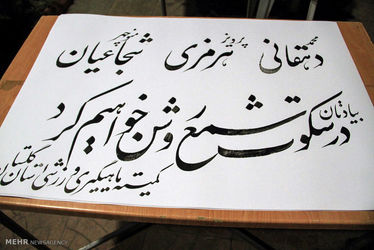 محمد دهقانی پرویز هرمزی منوچهر شجاعیان
بیادتان در سکوت شمع روشن خواهیم کرد
کمیته پاهیگیری ورزشی استان گلستان
MEHR NEWSAGENCY